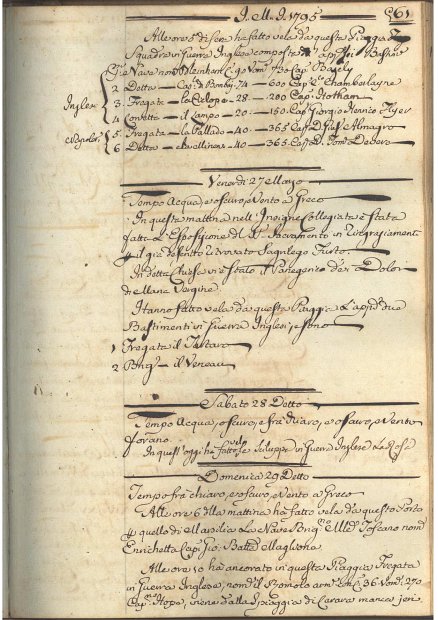 J. M. J. 1795
561
Alle ore 5 di sera ha fatto vela da questa Piaggia
Squadra in Guerra Inglese composta Bastim
Nave nom Cap.
2 Detto — Cap. Bomby 74 — 600 Cap. Chamberlayne
Inglesi
3 Fregata — la Ciclope — 28 — 200 Cap. Hotham
4 Corvetta — il Lampo — 20 — 150 Cap. Giorgio Henrico
Spagnoli
5 Fregata — la Pallade — 40 — 365 D. Gius. Almagro
6 Detta — 40 — 365 D. Tom.
Venerdi 27 Marzo
Tempo Acqua, e oscuro, e Vento a Greco
In questa mattina nell' Insigne Collegiata è stata
fatta l' Esposizione del SS. Sacramento in Ringraziamento
il già descritto ritrovato Sagrilego Furto.
In detta Chiesa vi è stato il Panegirico dei Dolori
di Maria Vergine.
Hanno fatto vela da questa Piaggia due
Bastimenti in Guerra Inglesi, e sono
1 Fregata il Tartaro
2 Brig. — il
Sabato 28 Detto
Tempo Acqua, oscuro, e frà chiaro, e oscuro, e Vento
forano.
In quest' oggi ha fatto vela in Guerra Inglese
Domenica 29 Detto
Tempo frà chiaro, e oscuro, e Vento a Greco
Alle ore 6 della mattina ha fatto vela da questo Porto
quello di Marsilia La Nave Brig. Toscano nom.
Enrichetta Cap. Gio: Batta Maglione
Alle ore 10 ha ancorato in questa Piaggia Fregata
in Guerra Inglese, nom. il Romolo 36 Vom. 270
Cap. Hope, viene dalla Spiaggia di Carara manca jeri